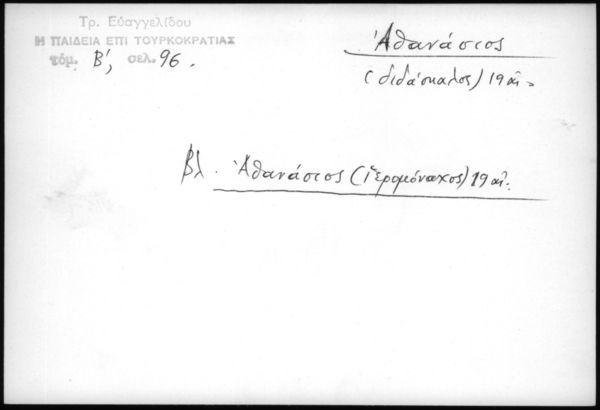 Τρ. Εὐαγγελίδου
Η ΠΑΙΔΕΙΑ ΕΠΙ ΤΟΥΡΚΟΚΡΑΤΙΑΣ
τόμ. Β', σελ. 96.
Ἀθανάσιος
(διδάσκαλος) 19 αἰ.
βλ. Ἀθανάσιος (ἱερομόναχος) 19 αἰ.